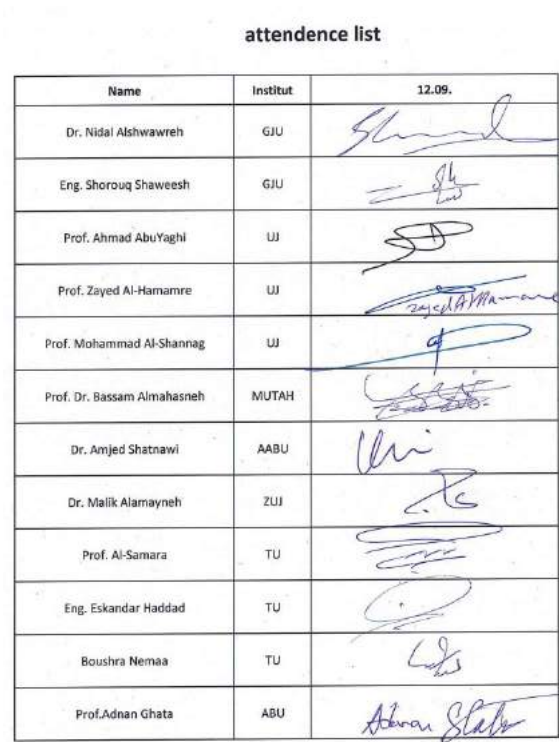 attendence list
Name Institut 12.09.
Dr. Nidal Alshwawreh GJU
Eng. Shorouq Shaweesh GJU
Prof. Ahmad AbuYaghi UJ
Prof. Zayed Al-Hamamre UJ
Prof. Mohammad Al-Shannag UJ
Prof. Dr. Bassam Almahasneh MUTAH
Dr. Amjed Shatnawi AABU
Dr. Malik Alamayneh ZUJ
Prof. Al-Samara TU
Eng. Eskandar Haddad TU
Boushra Nemaa TU
Prof.Adnan Ghata ABU